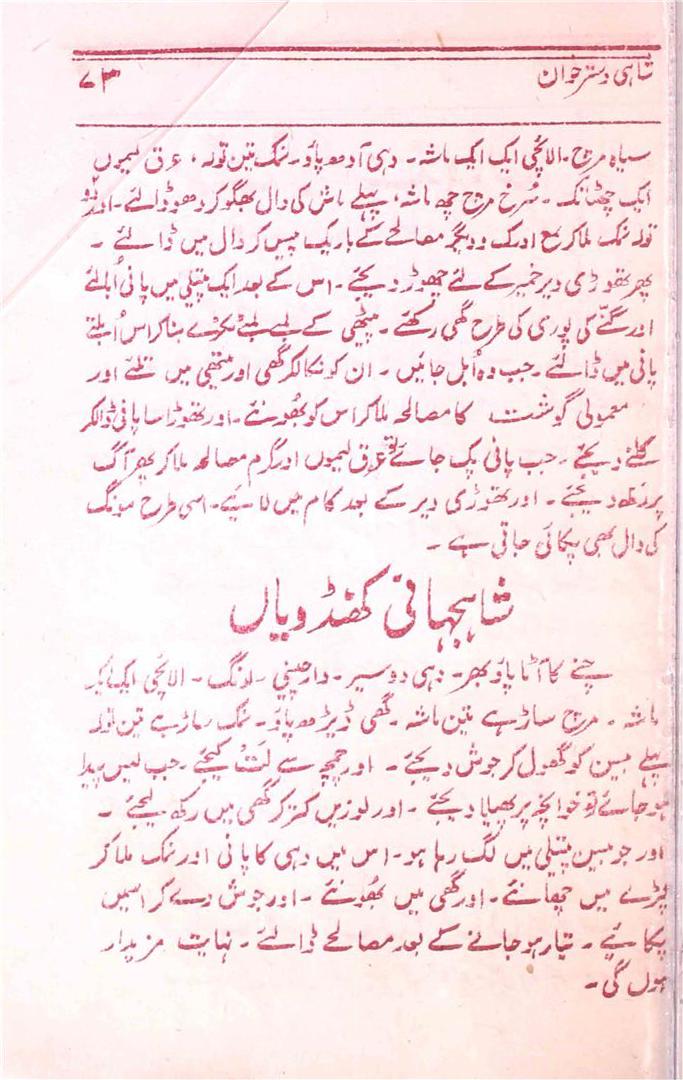 شاہی دسترخوان
۷۳
سیاہ مرچ۔ الائچی ایک ایک ماشہ۔ دہی آدھ پاؤ۔ نمک تین تولہ، عرق لیموں
ایک چھٹانک۔ سُرخ مرچ چھ ماشہ، پہلے ماش کی دال بھگو کر دھو ڈالئے۔ اور دو
تولہ نمک ملا کر مع ادرک و دیگر مصالحے کے باریک پیس کر دال میں ڈالئے۔
پھر تھوڑی دیر خمیر کے لئے چھوڑ دیجئے۔ اس کے بعد ایک پتیلی میں پانی اُبالئے
اور گنّے کی پوری کی طرح گھی رکھئے۔ پیٹھی کے لمبے لمبے ٹکڑے بنا کر اس اُبلتے
پانی میں ڈالئے۔ جب وہ اُبل جائیں۔ ان کو نکالکر گھی اور میتھی میں تلئے اور
معمولی گوشت کا مصالحہ ملا کر اس کو بھُونئے۔ اور تھوڑا سا پانی ڈالکر
گلنے دیجئے۔ جب پانی پک جائے تو عرق لیموں اور گرم مصالحہ ملا کر پھر آگ
پر رکھ دیجئے۔ اور تھوڑی دیر کے بعد کام میں لائیے۔ اسی طرح مونگ
کی دال بھی پکائی جاتی ہے۔
شاہجہانی کھنڈویاں
چنے کا آٹا پاؤ بھر۔ دہی دو سیر۔ دارچینی۔ لونگ۔ الائچی ایک ایک
ماشہ۔ مرچ ساڑھے تین ماشہ۔ گھی ڈیڑھ پاؤ۔ نمک ساڑے تین تولہ
پہلے بیسن کو گھول کر جوش دیجئے۔ اور چمچہ سے لَت کیجئے۔ جب لیس پیدا
ہو جائے تو خوانچہ پر پھیلا دیجئے۔ اور لوزیں کتر کر گھی میں رکھ لیجئے۔
اور جو بیسن پتیلی میں لگ رہا ہو۔ اس میں دہی کا پانی اور نمک ملا کر
کپڑے میں چھانئے۔ اور گھی میں بھُونئے۔ اور جوش دے کر اسمیں
پکائیے۔ تیار ہو جانے کے بعد مصالحے ڈالئے۔ نہایت مزیدار
ہوں گی۔